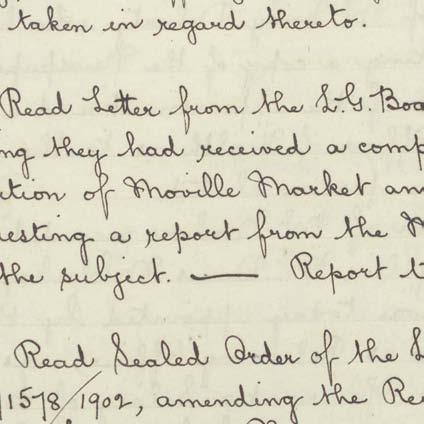 taken in regard thereto.
Read Letter from the L.G. Boa
ng they had received a comp
tion of Moville Market an
uesting a report from the M
the subject. — Report t
Read Sealed Order of the L
1578/1902, amending the Re